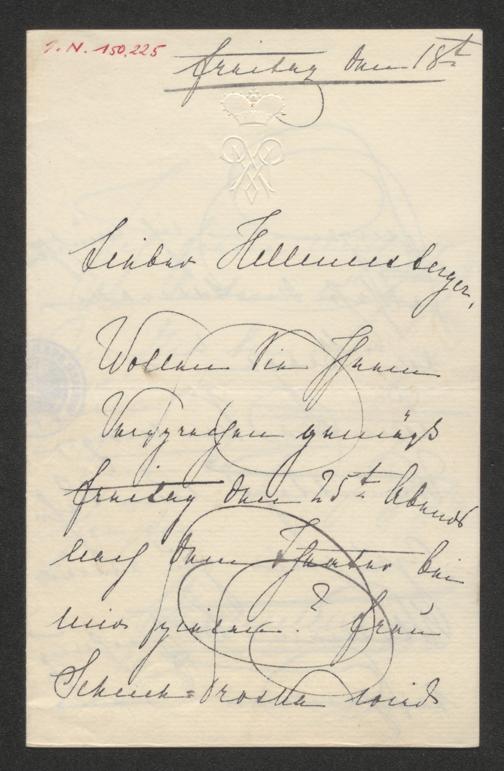 I. N. 150.225
Freitag den 18t
Lieber Hellmesberger,
Wollen Sie Ihrem
Versprechen gemäß
Freitag den 25t Abends
nach dem Theater bei
mir spielen.? Frau
Schuch=Proska wird